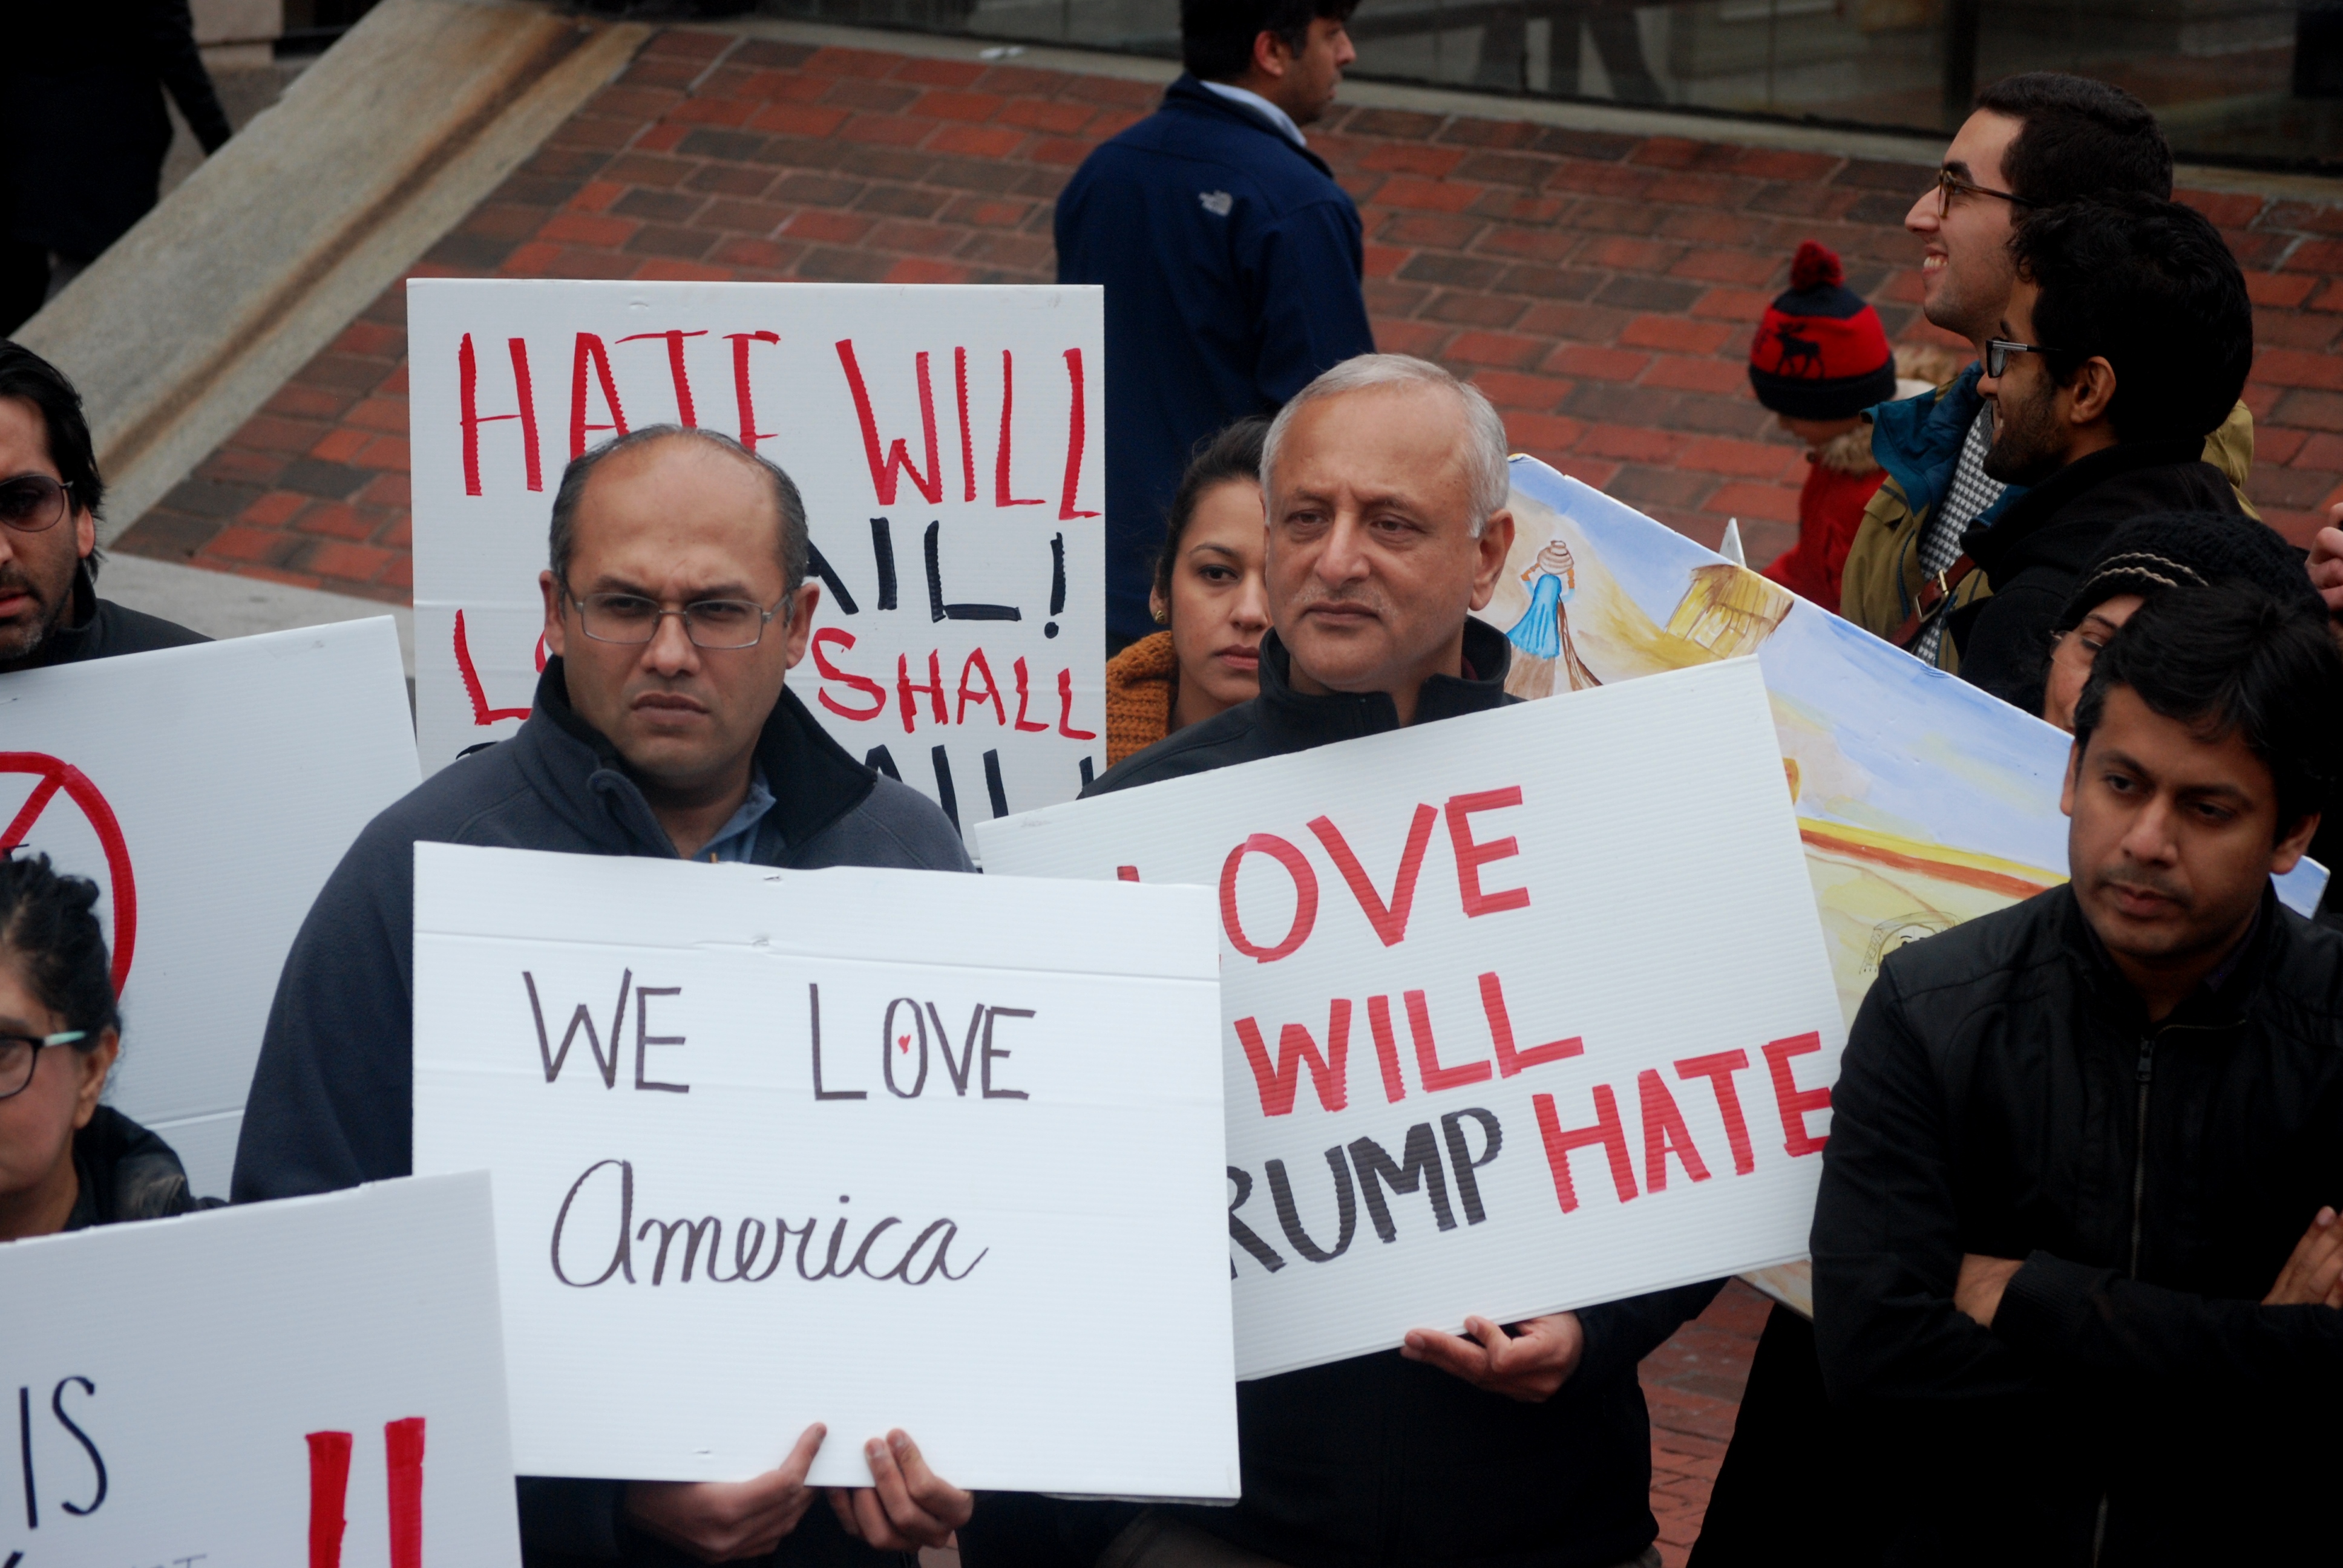 HATE WILL
AIL!
SHALL
WE LOVE
America
LOVE
WILL
RUMP HATE
IS